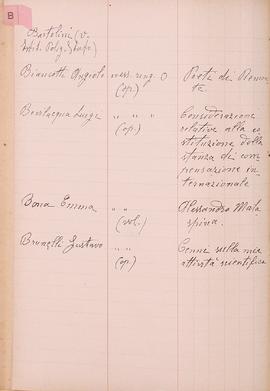 B
Bartolini (v.
Biancotti Angiolo
(op.)
Poeti dei
Bevilacqua Luigi " " "
(op.)
Considerazione
relative alla co
stituzione della
stanza dei com
pensazione in
ternazionale
Bona Emma " "
(vol.)
Alessandro Mala
spina.
Brunelli Gustavo " "
(op)
Cenni sulla mia
attività scientifica